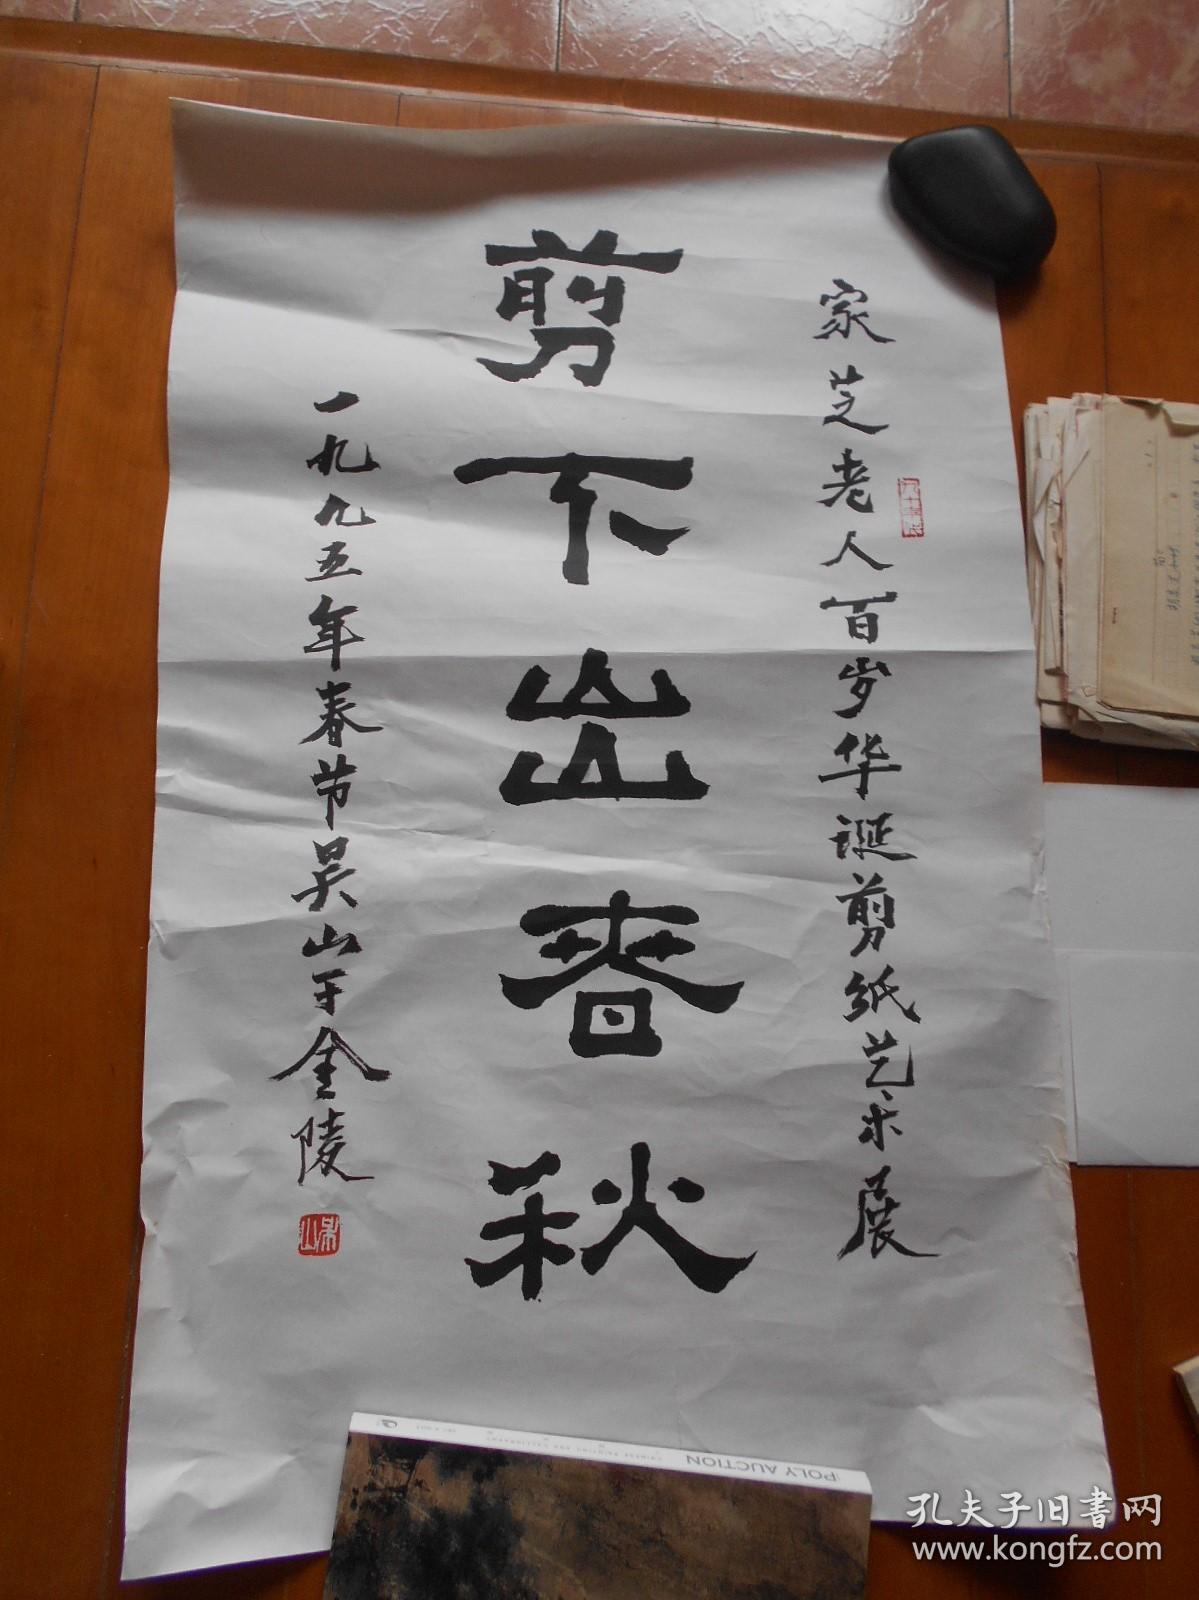 家芝老人百岁华诞剪纸艺术展
剪下出春秋
一九九五年春节吴山于金陵
吴山
POLY AUCTION
孔夫子旧书网
www.kongfz.com